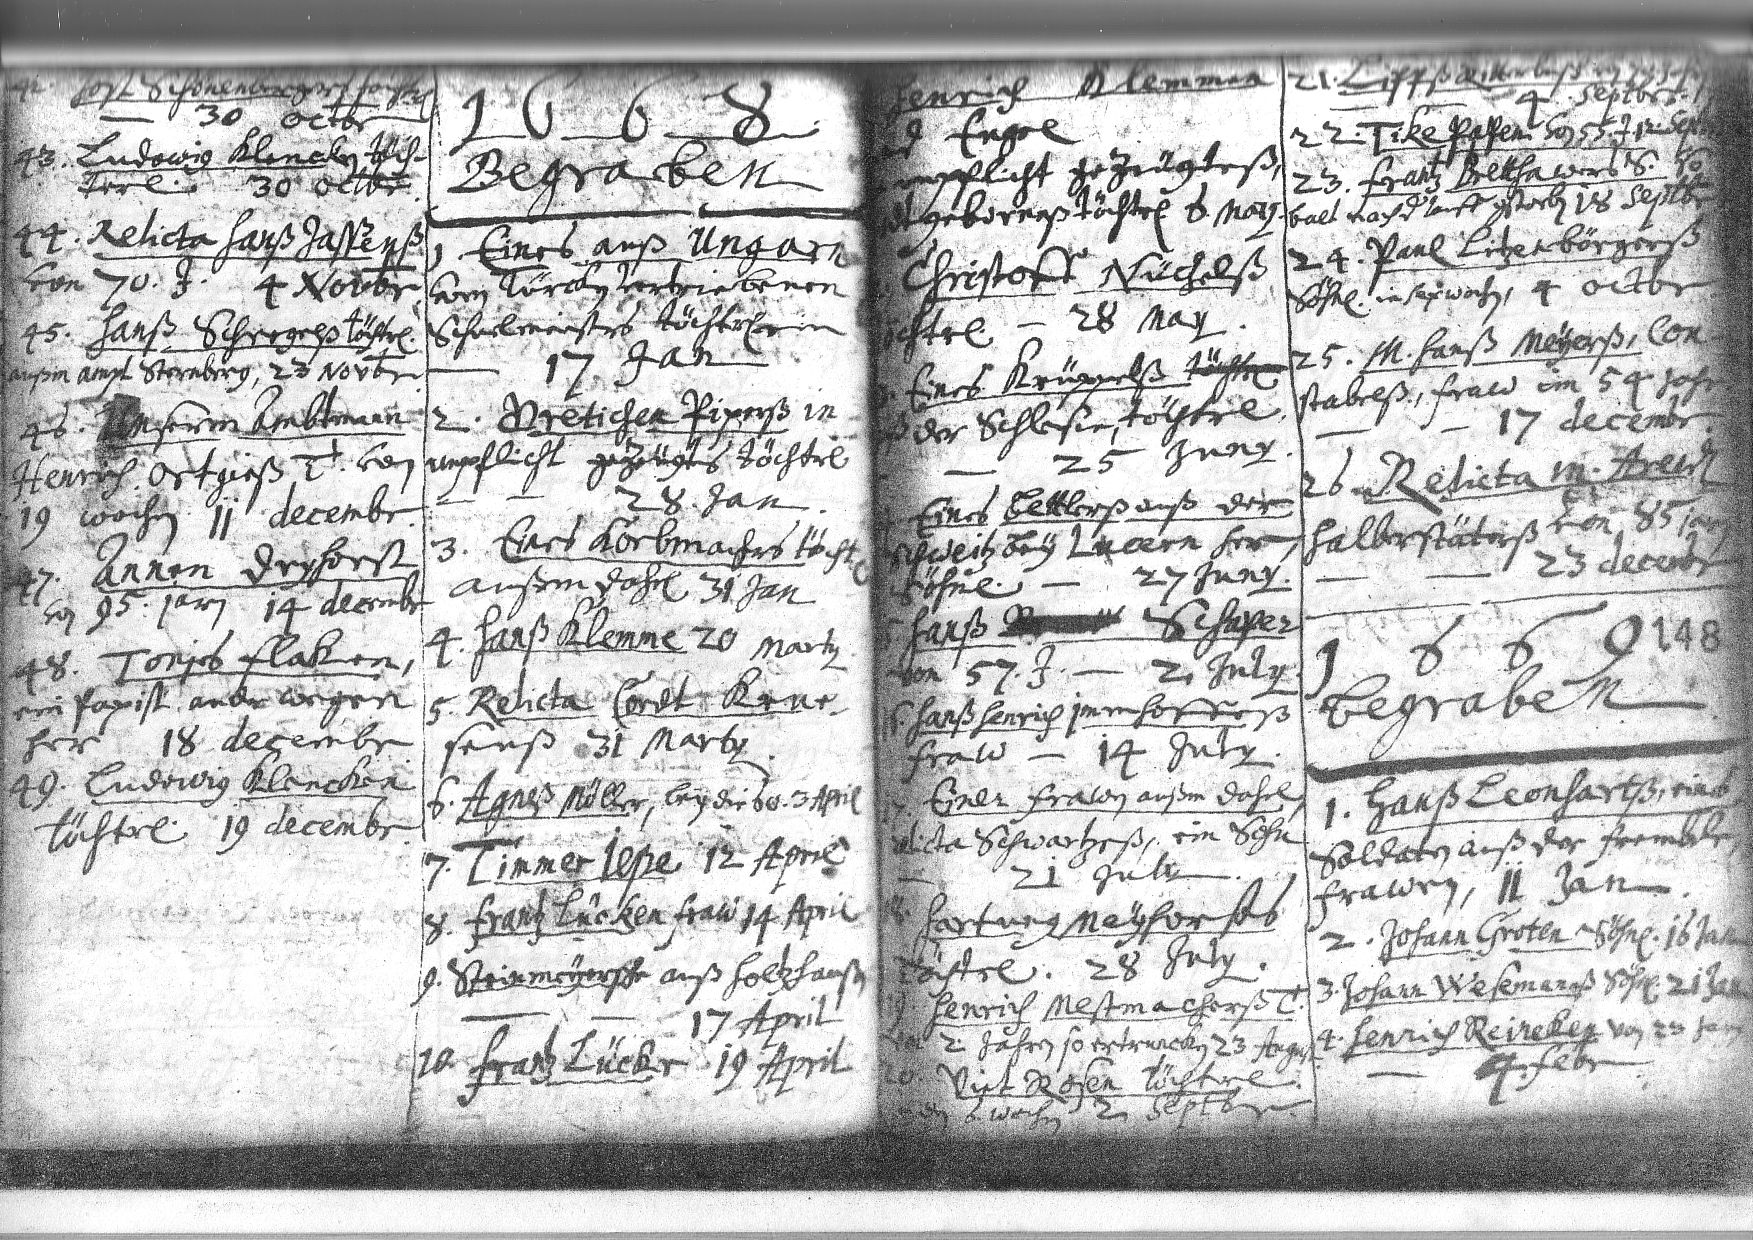 42. Jost Schönenbergers töchtrl
— 30 octbr
43. Ludowig Klencken töch-
terl. 30 octbr.
44. Relicta Hanß Jasperß
von 70. J. 4 Novbr.
45. Hanß Schregelß töchtrl.
außm ampt Sternberg, 23 Novbr.
46. Unserm Ambtmann
Henrich Ortgieß T. von
19 wochn 11 decembr.
47. Annen Dryhorst
von 95. jarn 14 decembr
48. Tonjes flaken,
ein Papist anderwegen
her 18 decembr
49. Ludowig Klencken
töchtrl. 19 decembr.
1668
Begraben
1 Eines auß Ungarn
vom Türcken vertriebenen
Schuelmeisters töchterlein
— 17 Jan
2. Gretichen Pipers in
unpflicht gezeugtes töchtrl
— — 28. Jan.
3. Eines Korbmachers töcht
außm dohrf 31 Jan
4. Hanß Klemme 20 Marty.
5. Relicta Cordt
31 Marty.
6. Agneß Möller, 3 April
7. Timmer Jesse 12 April
8. frantz Lücken fraw 14 April
9. Steinmeyersche auß Holtzhausen
— — 17 April
10. frantz Lücke 19 April
Henrich Klemmen
Engel
unpflicht gezeugteß,
geborneß töchtrl 6 May.
Christoff Nüchelß
töchtrl. — 28 May.
Eines Krüppelß
der Schlesie, töchtrl.
— 25 Juny.
Eines bettlerß auß der
schweitz bey Lucern her,
Söhnl. — 27 Juny.
Hanß Schaper
von 57. J. — 2. July.
Hanß Henrich Immhoffeß
fraw — 14 July.
Einer frawen außm dohrf,
relicta Schwartzeß, ein Sohn
— 21 July.
Hartweg Meyhorstes
töchtrl. 28 July.
Henrich Mestmacherß T.
2. Jahren so ertruncken 23 August
20. Viet Rosen töchtrl.
6. wochn 2. Septbr.
21.
4. Septbr.
22. Tike Papen von 55. J 12 Septbr
23. frantz S. so
balt nach d tauff gestorbn 18 Septbr
24. Paul Litzenbörgerß
Söhnl. in sex wochn, 4 octbr.
25. M. Hanß Meyerß, Con-
stabelß, fraw im 54 Jahr
— — 17 decembr.
26 Relicta M. Arendt
Halberstäterß von 85 jarn
— — 23 decembr
1669 148
begraben
1. Hanß Leonhartß, eines
Soldaten auß der frembde,
frawen, 11 Jan.
2. Johann Groten Söhnl. 16 Jan
3. Johann Wesemanß Söhnl. 21 Jan
4. Henrich Reineken von 23 Jarn
— 4. febr.